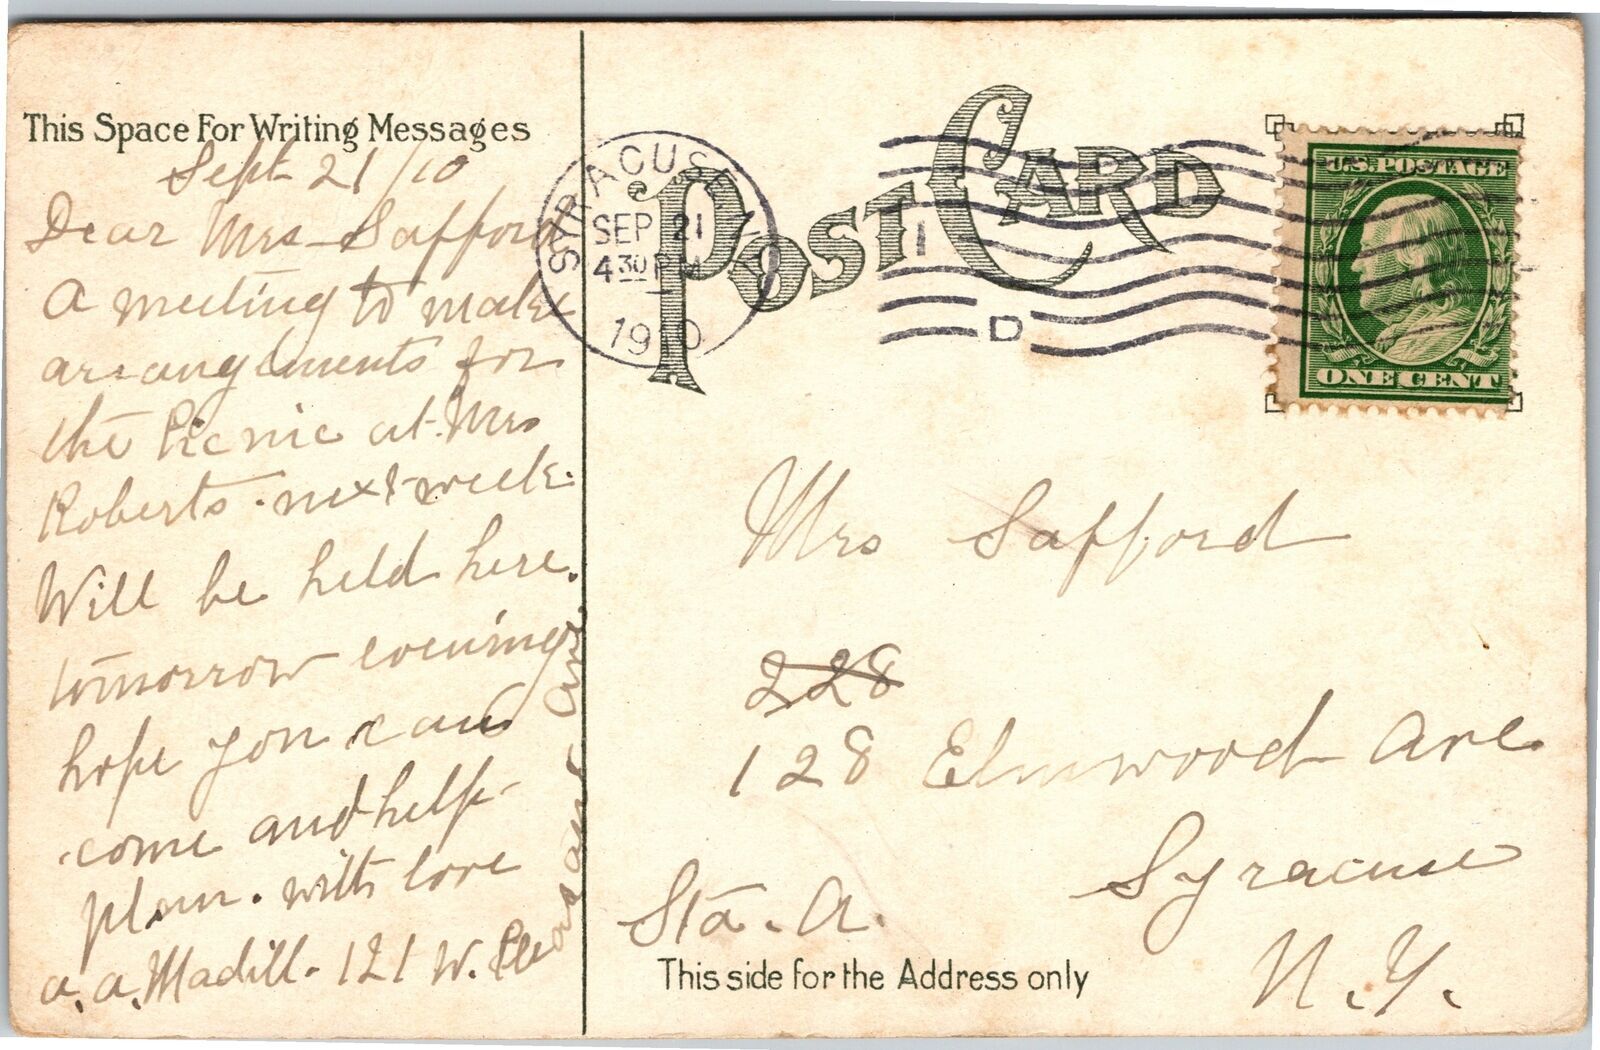 This Space For Writing Messages
Sept 21/10
Dear Mrs Safford
A meeting to make
arrangements for
the Picnic at Mrs
Roberts. next week.
Will be held here.
tomorrow evening
hope you can
come and help
plan. with love
a. a. Madill. 121 W. Pleasant Ave.
POST CARD
SYRACUSE, N.Y.
SEP 21
4 30 PM
1910
1
D
U.S. POSTAGE
ONE CENT
Mrs Safford
228
128 Elmwood Ave
Syracuse
Sta. A.
N. Y.
This side for the Address only